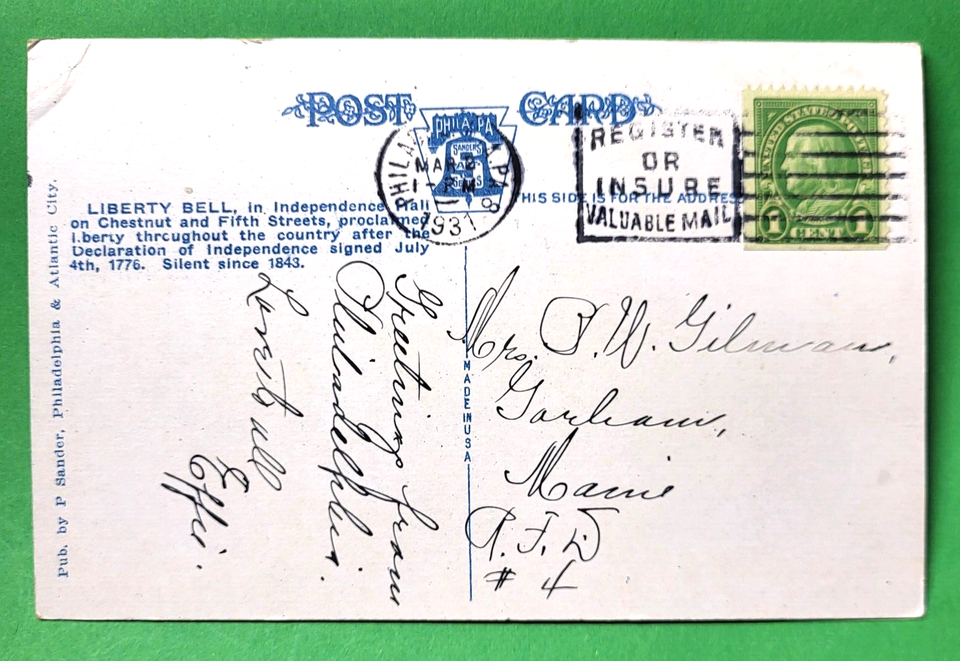 POST CARD
PHILA. PA.
PHILA
PA.
MAR 8
1 - PM
1931
REGISTER
OR
INSURE
VALUABLE MAIL
UNITED STATES POSTAGE
1 CENT 1
THIS SIDE IS FOR THE ADDRESS
LIBERTY BELL, in Independence Hall
on Chestnut and Fifth Streets, proclaimed
Liberty thrcughout the country after the
Declaration of Independence signed July
4th, 1776. Silent since 1843.
Greetings from
Philadelphia.
Love to all
Effie.
MADE IN USA
Mrs. P. W. Gilman,
Gorham,
Maine
R. F. D
# 4
Pub. by P Sander, Philadelphia & Atlantic City.